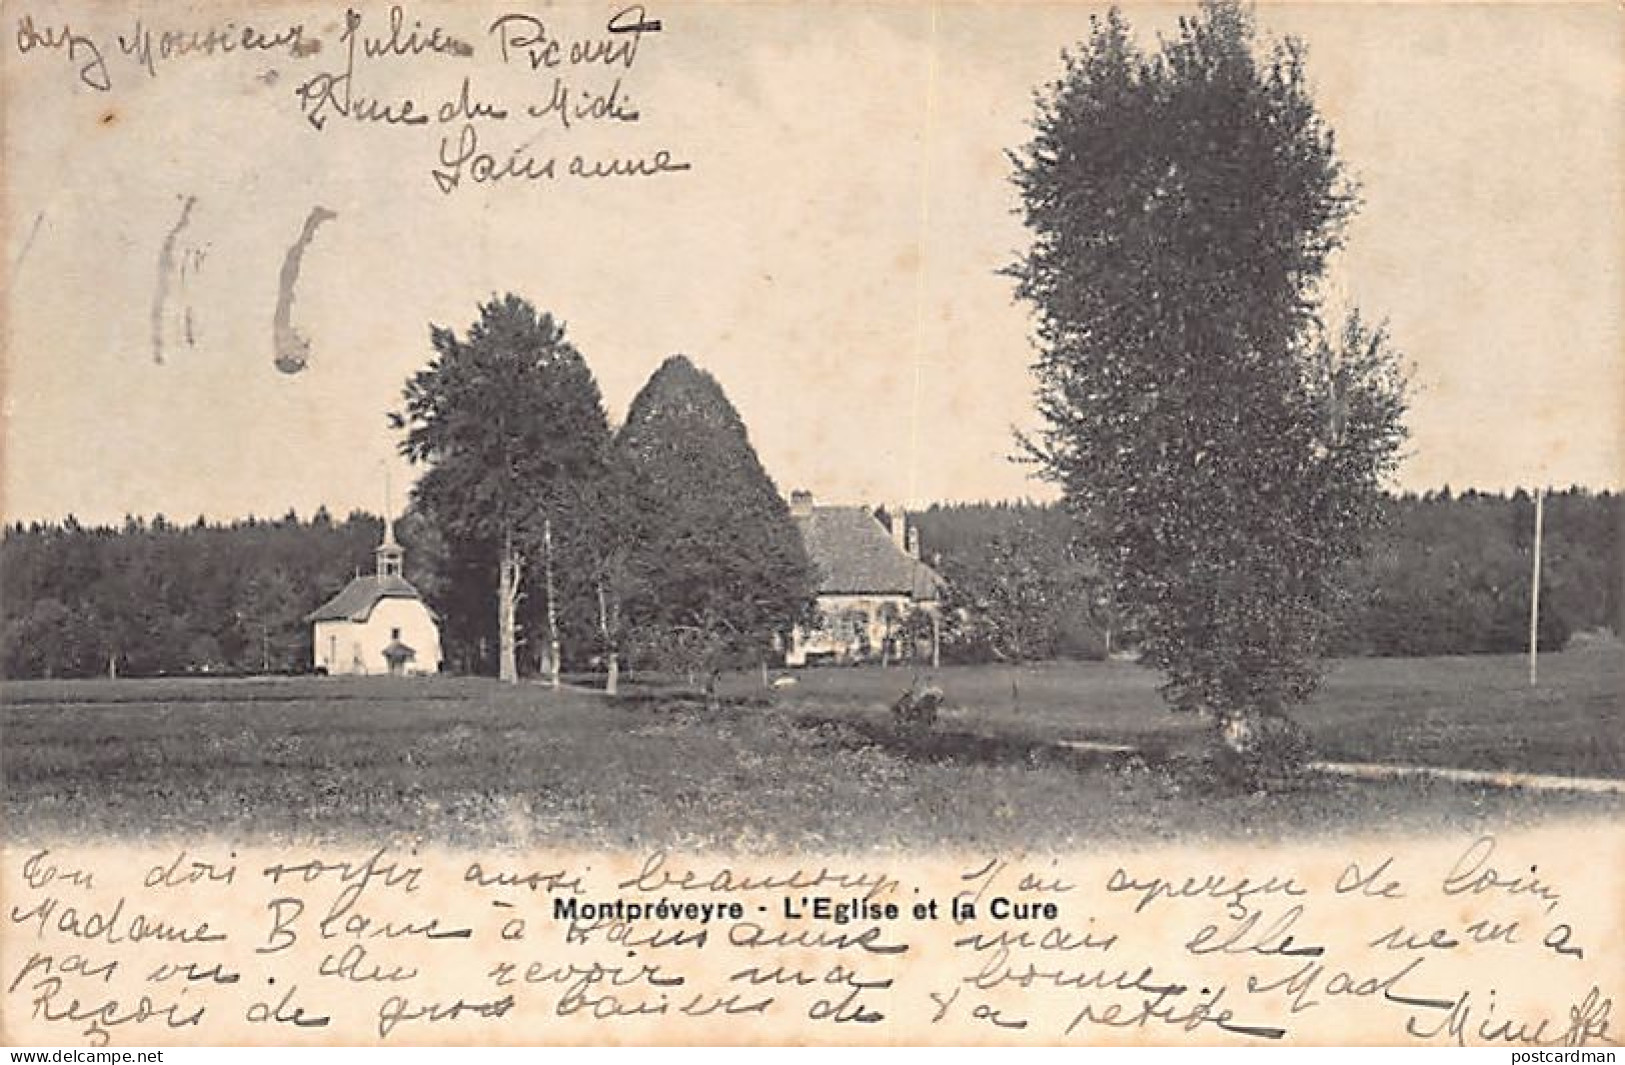 chez Monsieur Julien Picard
12 rue du Midi
Lausanne
Tu dois sortir aussi beaucoup. J'ai aperçu de loin,
Montpréveyre - L'Eglise et la Cure
Madame Blanc à Lausanne mais elle ne m'a
pas vu. Au revoir ma bonne. Mad
Reçois de gros baisers de ta petite Minette
www.delcampe.net
postcardman